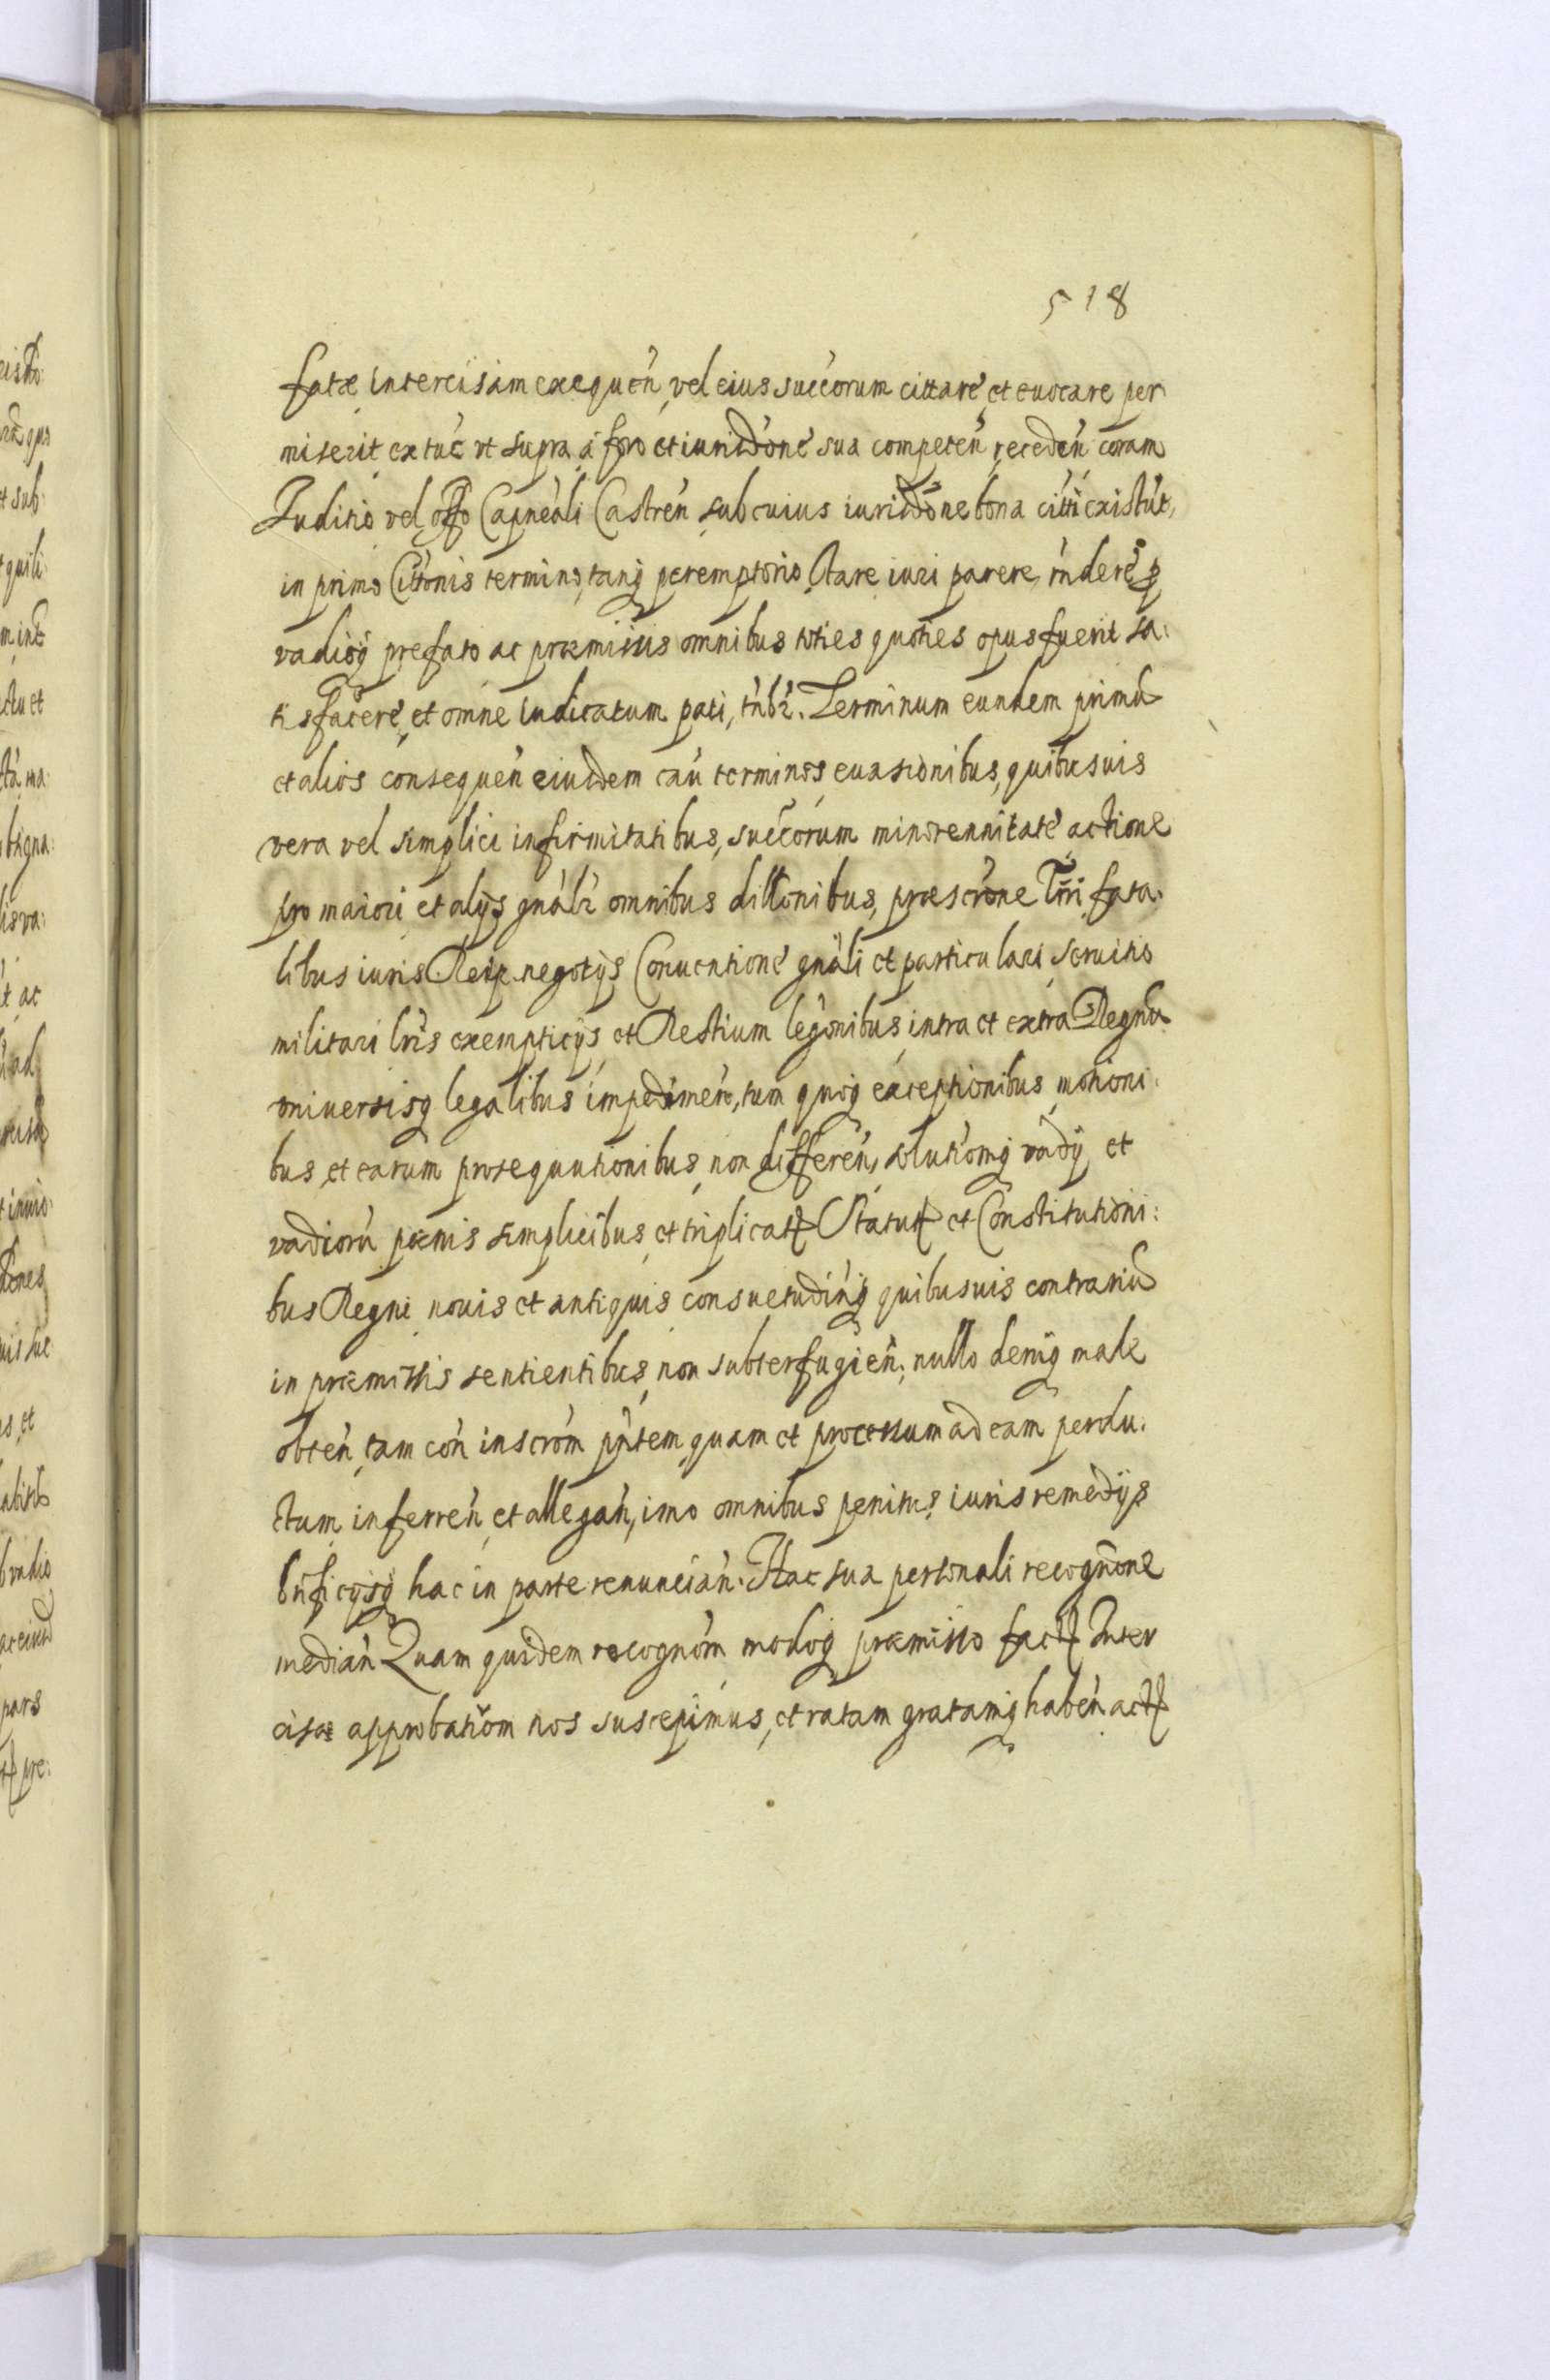 518
fatæ intercisam exequeń, vel eius succorum cittare, et euocare per
miserit, ex tuć vt supra, á foro et iurisdóne sua competeń, recedeń coram
Juditio vel offo Capneáli Castreń, sub cuius iurisdóne bona citti existút,
in primo Citónis termino, tanq̃ peremptorio, stare iuri parere, rńdere p
vadioq̃ prefato ac præmissis omnibus toties quoties opus fuerit sa:
tisfacere, et omne iudicatum pati, tńbr. Terminum eundem primũ
et alios consequeń eiusdem caú terminos, euasionibus, quibusuis
vera vel simplici infirmitatibus, succorum minorennitate, actione
pro maiori, et alijs gnálr omnibus dillonibus, præscróne Trri fata.
libus iuris Reip. negotijs Conuentione gnáli et particulari, seruitio
militari lrís exempticijs et Restium legónibus, intra et extra Regnũ
vniuersisq̃ legalibus impedimen., tum quoq̃ exceptionibus, motioni:
bus, et earum prosequutionibus, non differeń, solutiomq̃ vadij, et
vadiorú pænis simplicibus, et triplicat Statut et Constitutioni:
bus Regni, nouis et antiquis, consuetudinq̃ quibusuis contrariũ
in præmissis sentientibus, non subterfugień; nullo deniq̃ male
obteń, tam coń inscróm pńtem, quam et processum ad eam perdu.
ctum, inferreń, et allegań, imo omnibus penitus, iuris remedijs
bńficijsq̃ hac in parte renuncian̄. Hac sua personali recognóne
median̄ Quam quidem recognóm modoq̃ præmisso fact Inter
cisæ approbatiom nos suscepimus, et ratam gratamq̃ habeń act